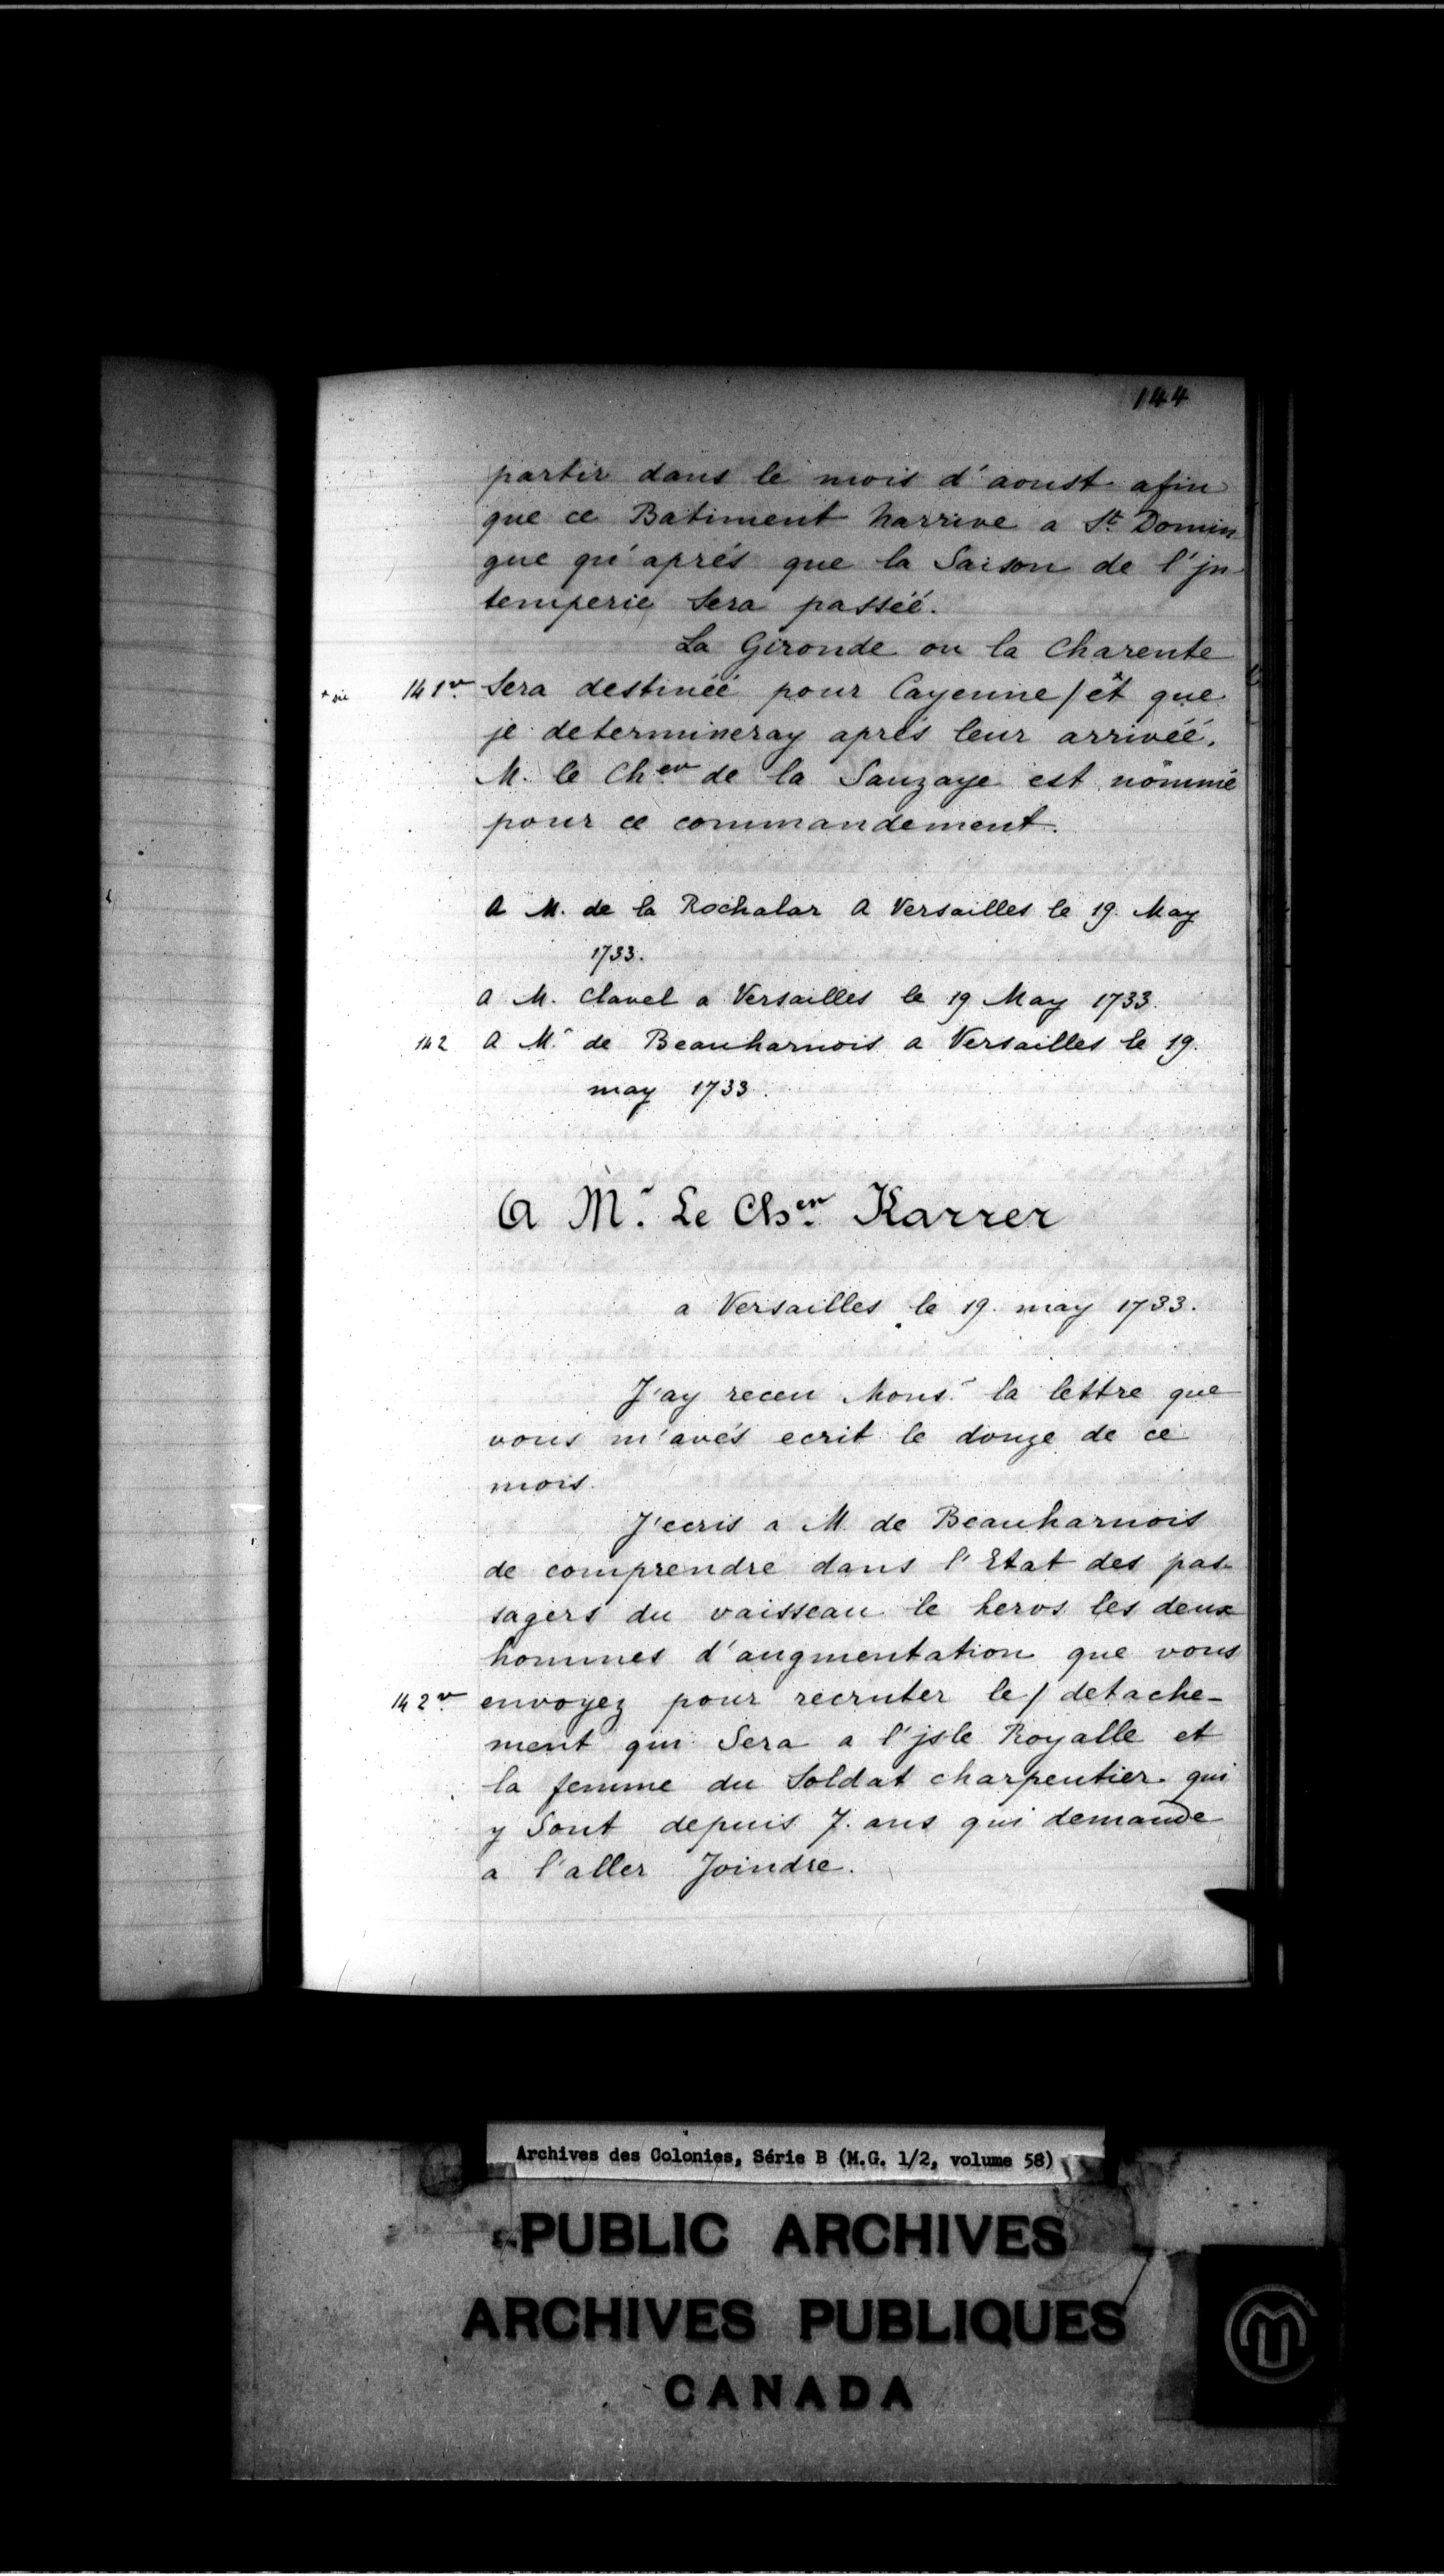 144
partir dans le mois d'aoust afin
que ce Batiment narrive a St. Domin
gue qu'aprés que la Saison de l'jn-
temperie Sera passéé.
La Gironde ou la Charente
+ sic 141v. Sera destinéé pour Cayenne / êt que
je determineray aprés leur arrivéé.
M. le Cher. de la Sauzaye est nommé
pour ce commandement.
A M. de la Rochalar A Versailles le 19. May
1733.
a M. Clavel a Versailles le 19 May 1733.
142 a Mr. de Beauharnois a Versailles le 19.
may 1733.
A Mr. Le Cher. Karrer
a Versailles le 19. may 1733.
J'ay receu Monsr. la lettre que
vous m'avés ecrit le douze de ce
mois.
J'ecris a M. de Beauharnois
de comprendre dans l'Etat des pas-
sagers du vaisseau le heros les deux
hommes d'augmentation que vous
142v. envoyez pour recruter le / detache-
ment qui Sera a l'jsle Royalle et
la femme du Soldat charpentier qui
y Sont depuis 7. ans qui demande
a l'aller Joindre.
Archives des Colonies, Série B (M.G. 1/2, volume 58)
PUBLIC ARCHIVES
ARCHIVES PUBLIQUES
CANADA